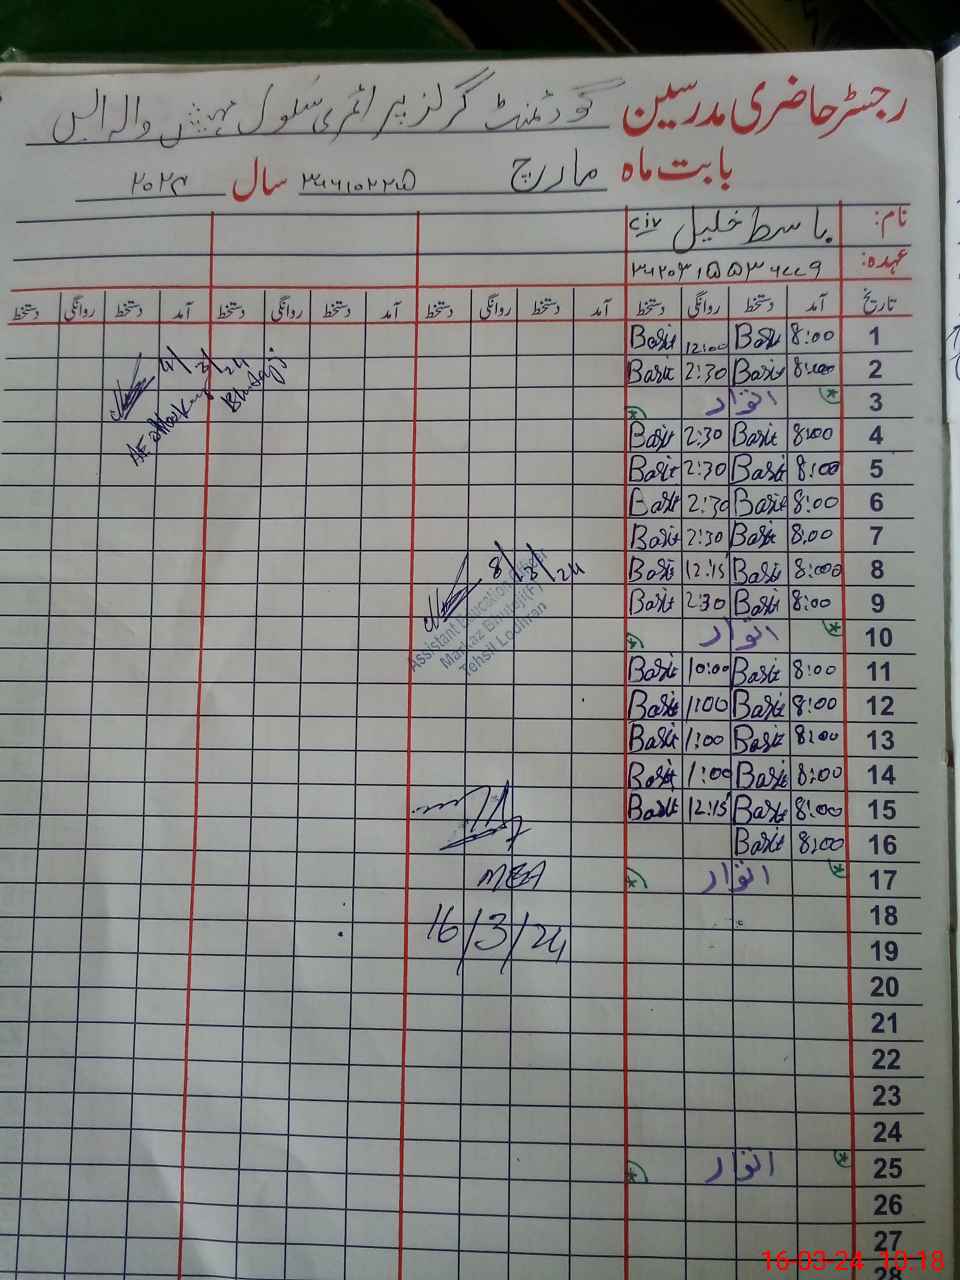 رجسٹر حاضری مدرسین گورنمنٹ گرلز پرائمری سکول والہ ایس
بابت ماہ مارچ سال ۲۰۲۴
نام: باسط خلیل
عہدہ:
تاریخ آمد دستخط روانگی دستخط آمد دستخط روانگی دستخط آمد دستخط روانگی دستخط
1 8:00 Basit 12:00 Basit
2 8:00 Basit 2:30 Basit
3 اتوار
4 8:00 Basit 2:30 Basit
5 8:00 Basit 2:30 Basit
6 8:00 Basit 2:30 Basit
7 8:00 Basit 2:30 Basit
8 8:00 Basit 12:15 Basit
9 8:00 Basit 2:30 Basit
10 اتوار
11 8:00 Basit 10:00 Basit
12 8:00 Basit 1:00 Basit
13 8:00 Basit 1:00 Basit
14 8:00 Basit 1:00 Basit
15 8:00 Basit 12:15 Basit
16 8:00 Basit
17 اتوار
18
19
20
21
22
23
24
25 اتوار
26
27
28
4/3/24
8/3/24
Assistant Education Officer
Markaz Bhutaji(F)
Tehsil Lodhran
MEA
16/3/24
16-03-24 10:18